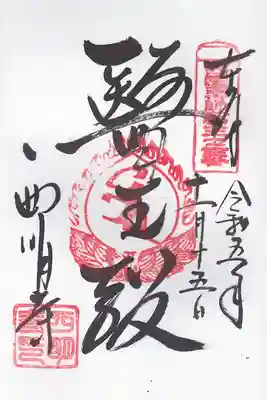 奉拝
令和五年
十一月十五日
醫王殿
西明寺